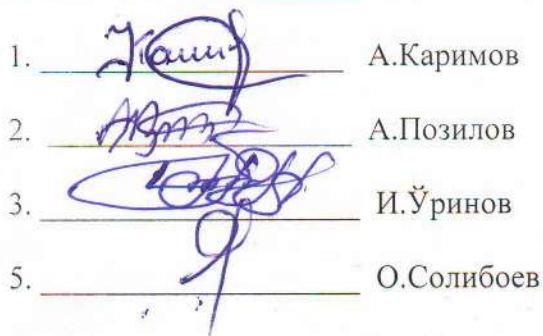 1. А.Каримов
2. А.Позилов
3. И.Ўринов
5. О.Солибоев